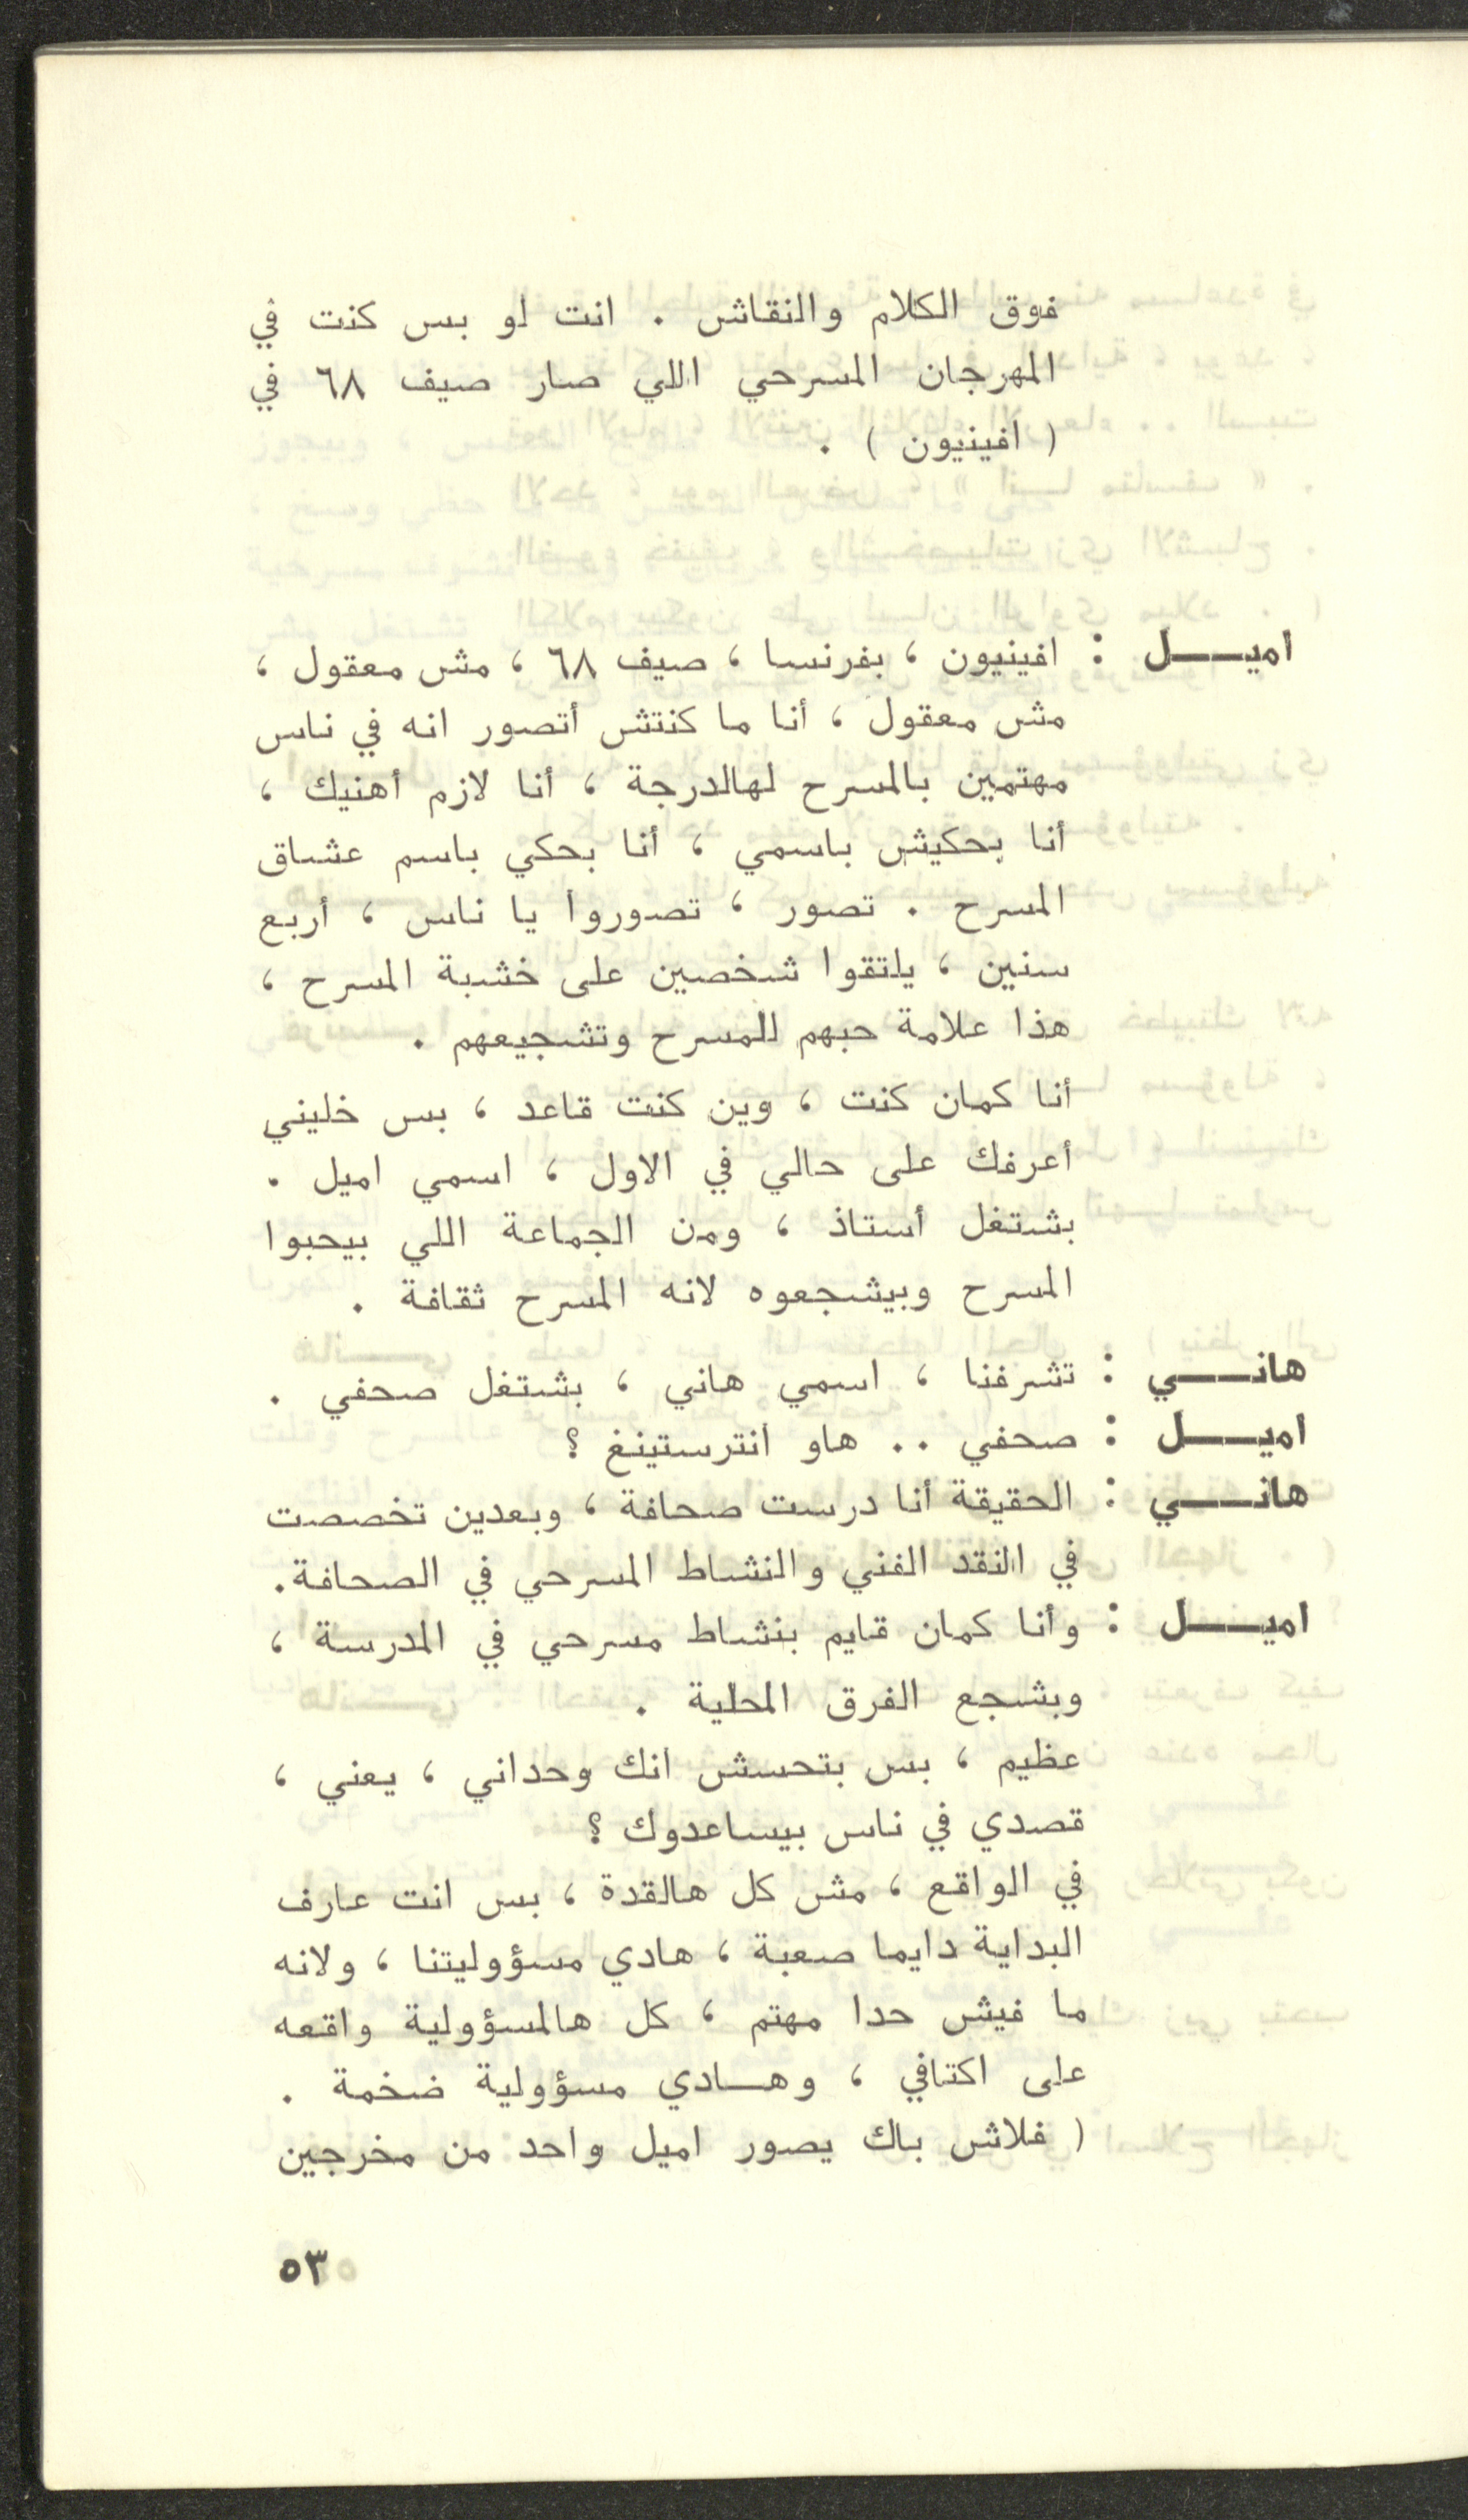 فوق الكلام والنقاش . انت لو بس كنت في
المهرجان المسرحي اللي صار صيف ٦٨ في
( افينيون ) .
اميـــل : افينيون ، بفرنسا ، صيف ٦٨ ، مش معقول ،
مش معقول ، أنا ما كنتش أتصور انه في ناس
مهتمين بالمسرح لهالدرجة ، أنا لازم أهنيك ،
أنا بحكيش باسمي ، أنا بحكي باسم عشاق
المسرح . تصور ، تصوروا يا ناس ، أربع
سنين ، يلتقوا شخصين على خشبة المسرح ،
هذا علامة حبهم للمسرح وتشجيعهم .
أنا كمان كنت ، وين كنت قاعد ، بس خليني
أعرفك على حالي في الاول ، اسمي اميل .
بشتغل أستاذ ، ومن الجماعة اللي بيحبوا
المسرح وبيشجعوه لانه المسرح ثقافة .
هانـــي : تشرفنا ، اسمي هاني ، بشتغل صحفي .
اميـــل : صحفي .. هاو انترستينغ ؟
هانـــي : الحقيقة أنا درست صحافة ، وبعدين تخصصت
في النقد الفني والنشاط المسرحي في الصحافة.
اميـــل : وأنا كمان قايم بنشاط مسرحي في المدرسة ،
وبشجع الفرق المحلية .
عظيم ، بس بتحسش انك وحداني ، يعني ،
قصدي في ناس بيساعدوك ؟
في الواقع ، مش كل هالقدة ، بس انت عارف
البداية دايما صعبة ، هادي مسؤوليتنا ، ولانه
ما فيش حدا مهتم ، كل هالمسؤولية واقعه
على اكتافي ، وهــادي مسؤولية ضخمة .
( فلاش باك يصور اميل واحد من مخرجين
٥٣